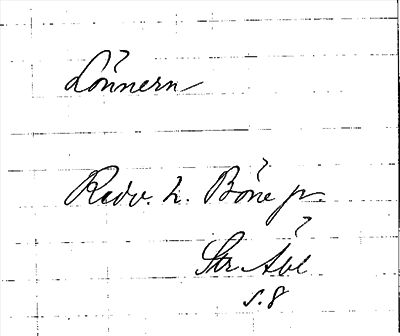 Lönnern
Redv. L. Böne jr.
Str. Åbl
s. 8